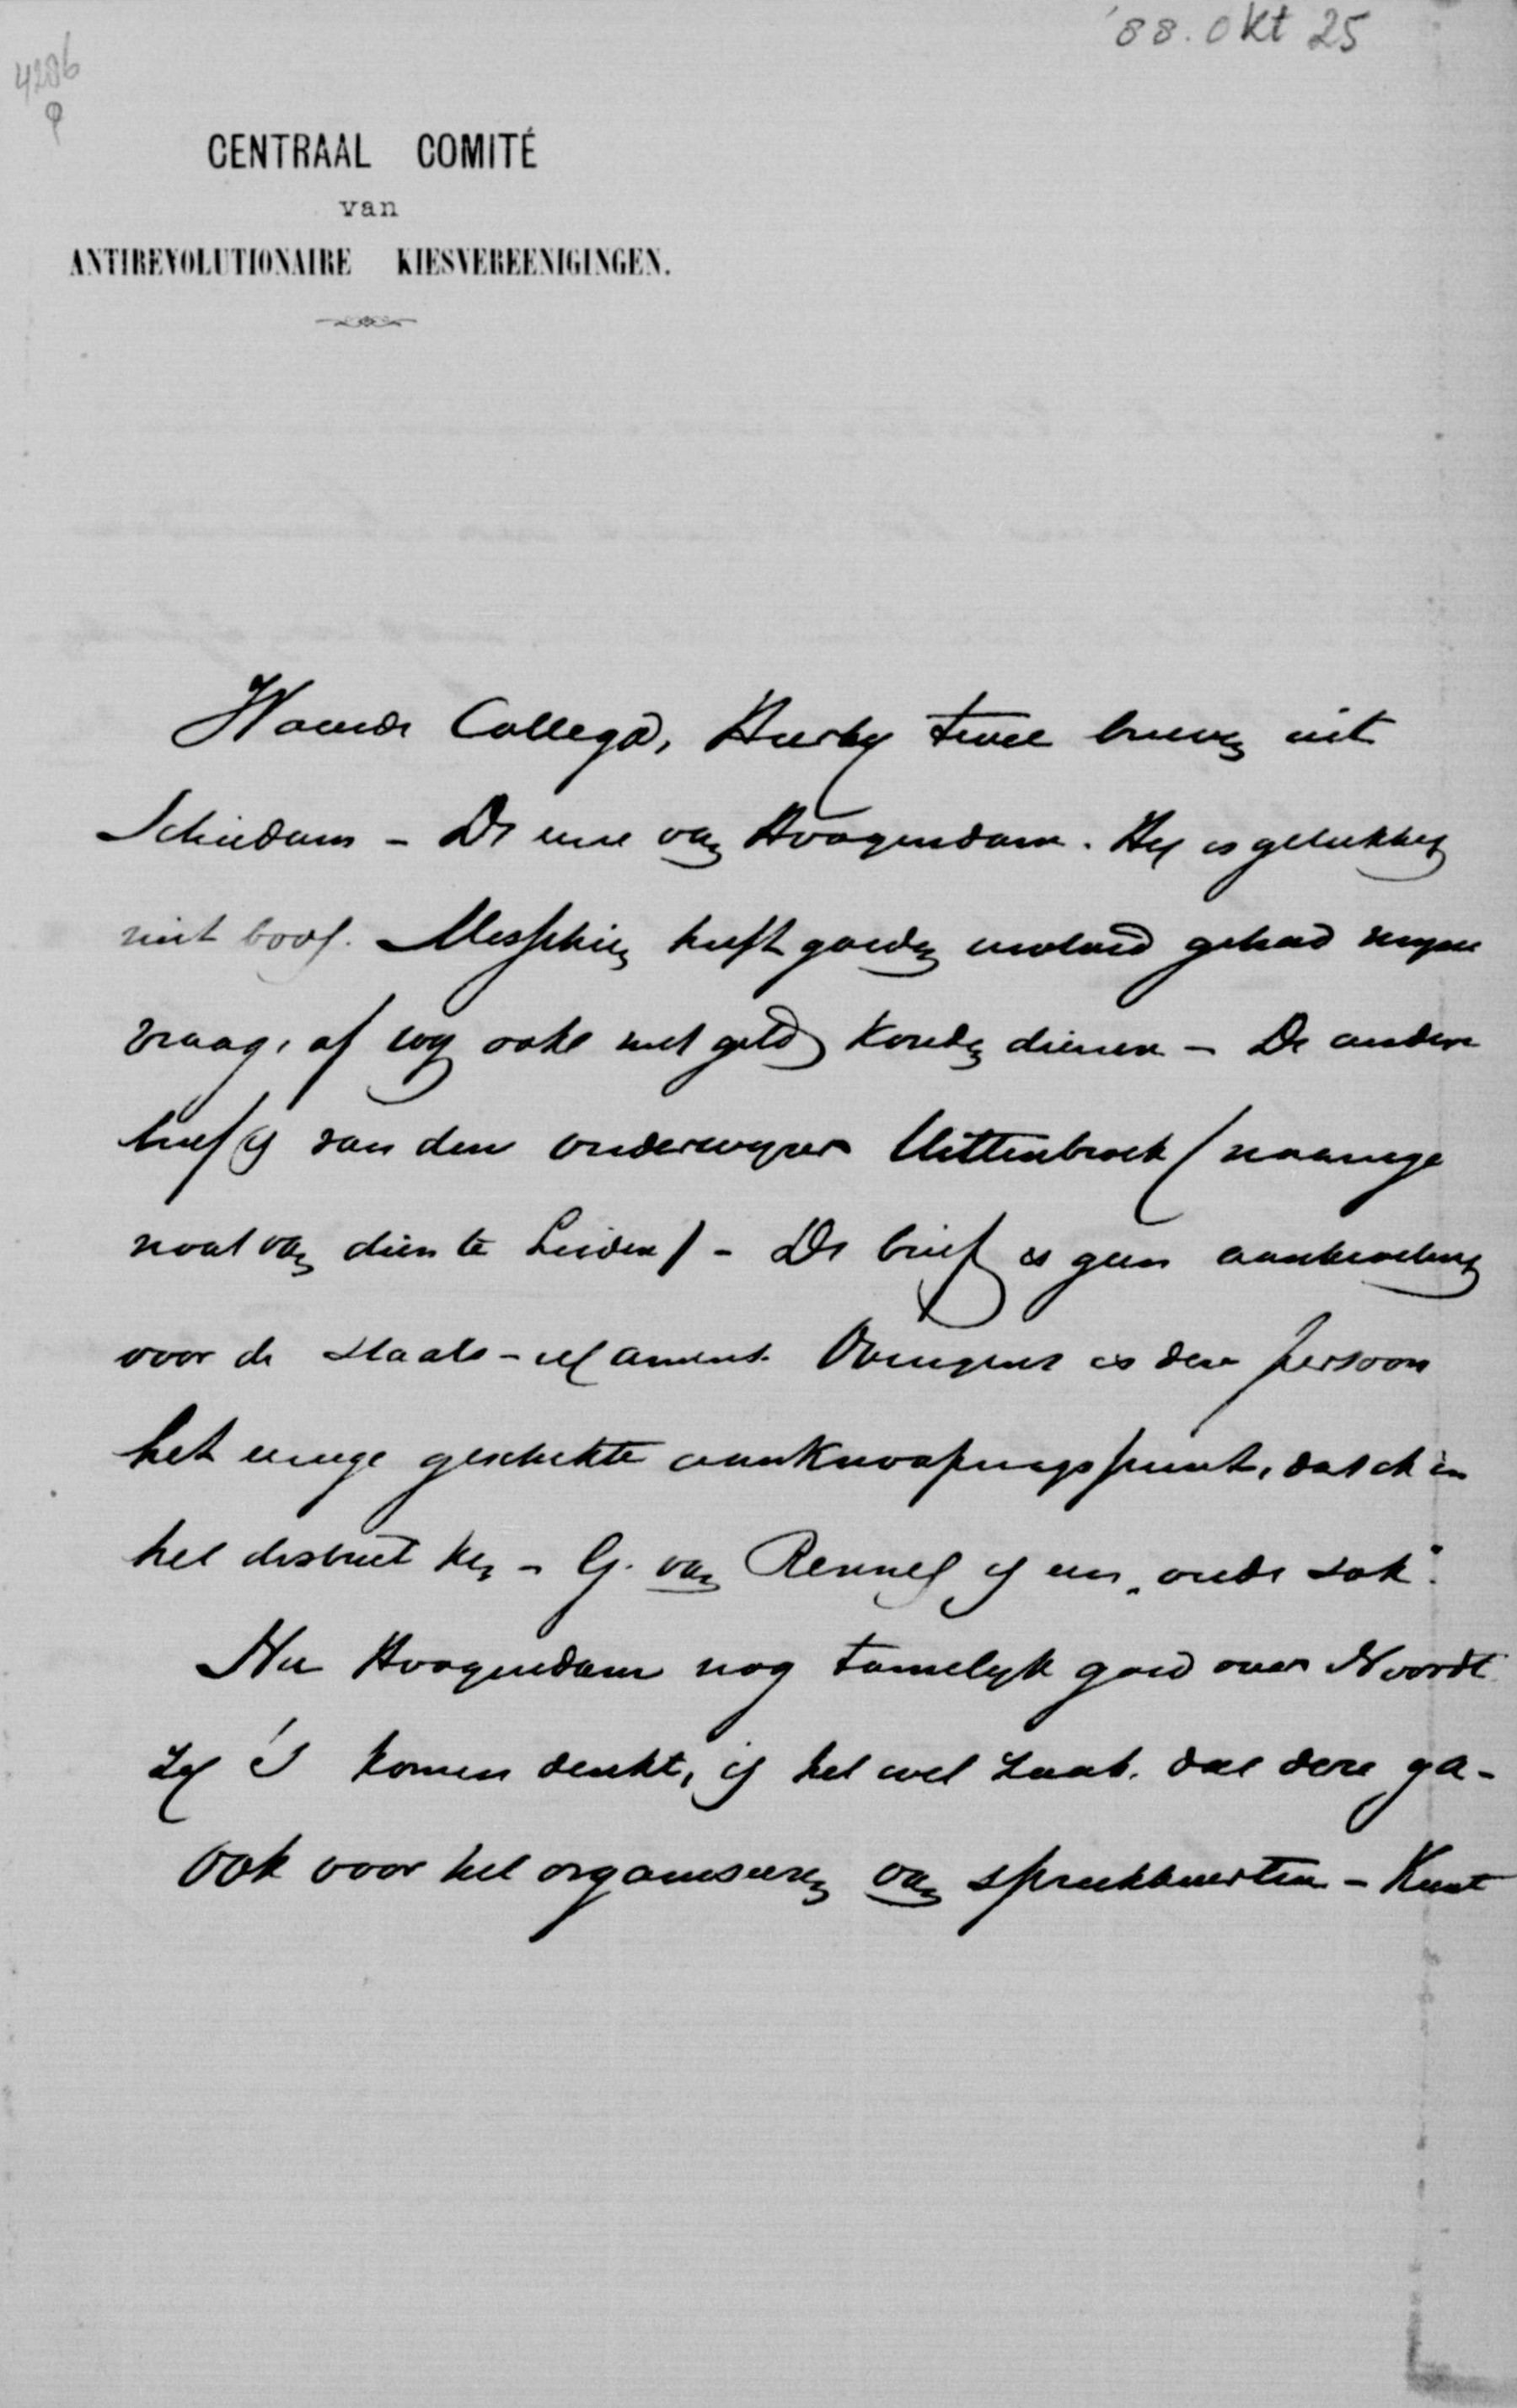 '88. Okt 25
4286
φ
CENTRAAL COMITÉ
van
ANTIREVOLUTIONAIRE KIESVEREENIGINGEN.
Waarde Collega, Hierby twee brieven uit
Schiedam - De eene van Hoogendam. Hy is gelukkig
niet boos. Misschien heeft goeden invloed gehad mijne
vraag, of wy ook met geld konden dienen - De andere
brief is van den onderwyzer Uittenbroek (naamge
noot van dien te Leiden) - De brief is geen aanbeveling
voor de staats-examens. Overigens is deze persoon
het eenige geschikte aanknoopingspunt, dat ik in
het district ken - G. van Rennes is een "oude sok".
Nu Hoogendam nog tamelyk goed over Noordt
zy's komen denkt, is het wel zaak, dat deze ga -
Ook voor het organiseeren van spreekbeurten - Kunt